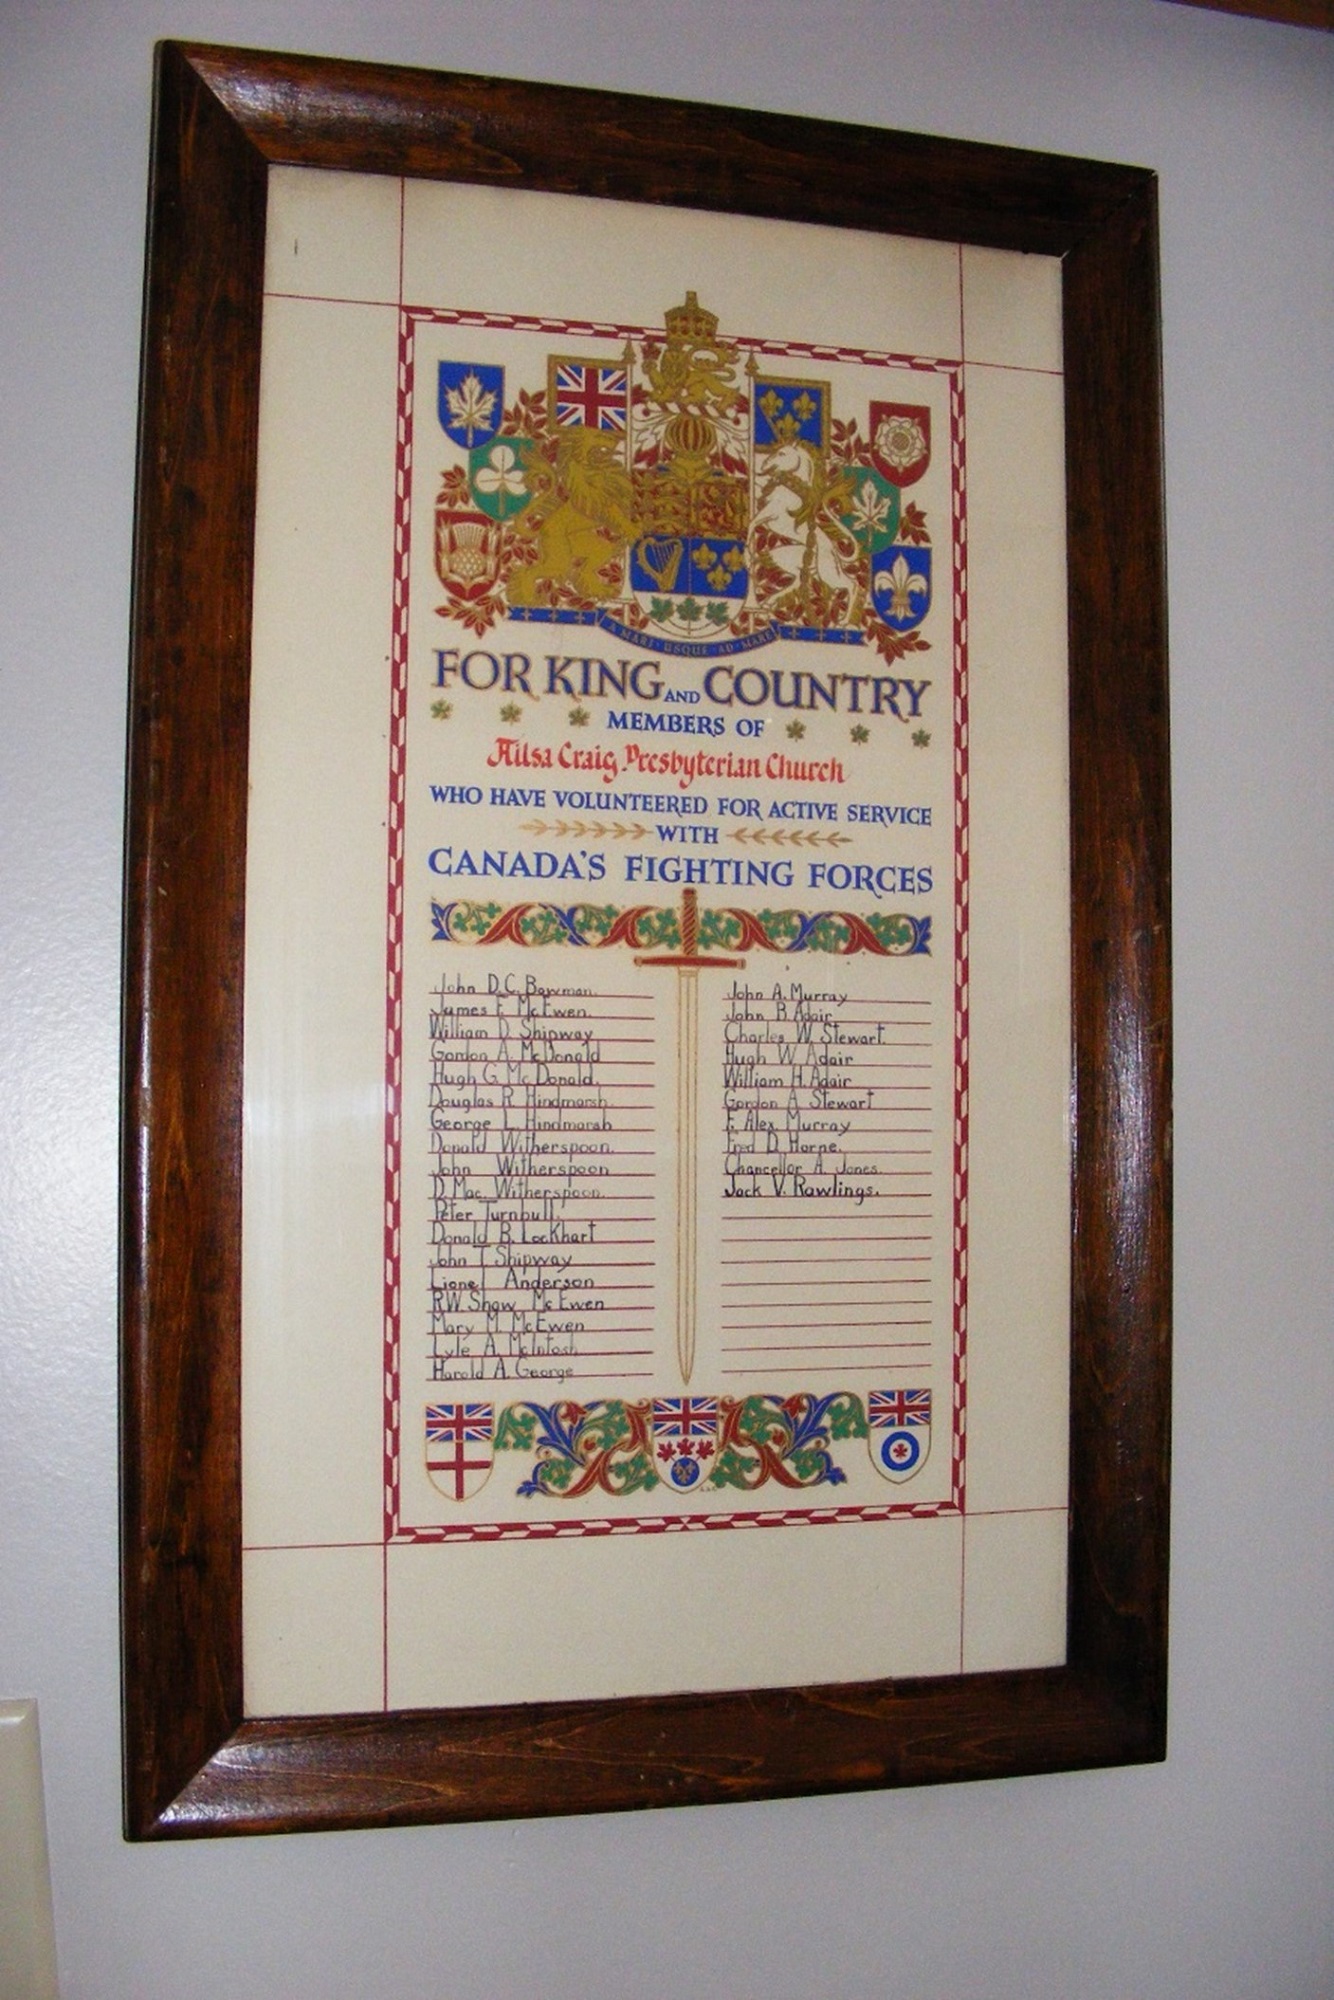 A MARI · USQUE · AD · MARE
FOR KING AND COUNTRY
MEMBERS OF
Ailsa Craig Presbyterian Church
WHO HAVE VOLUNTEERED FOR ACTIVE SERVICE
WITH
CANADA'S FIGHTING FORCES
John D.C. Bowman.
James F. McEwen.
William D. Shipway
Gordon A. McDonald
Hugh G. McDonald.
Douglas R. Hindmarsh.
George L. Hindmarsh
Donald Witherspoon.
John Witherspoon
D. Mac. Witherspoon.
Peter Turnbull.
Donald B. Lockhart
John T. Shipway
Lionel Anderson
R.W. Shaw McEwen
Mary M. McEwen
Lyle A. McIntosh
Harold A. George
John A. Murray
John B. Adair
Charles W. Stewart.
Hugh W. Adair
William H. Adair
Gordon A. Stewart
F. Alex. Murray
Fred D. Horne.
Chancellor A. Jones.
Jack V. Rawlings.